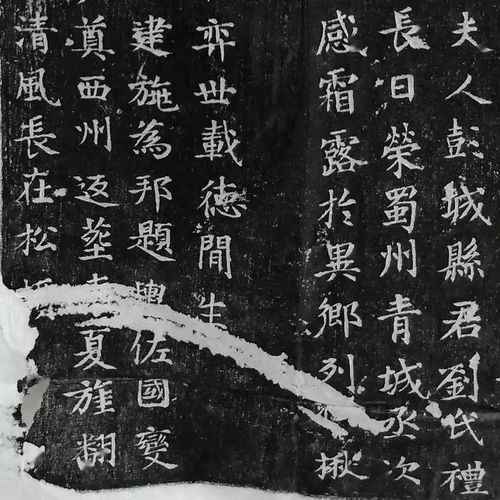 夫人彭城縣君劉氏禮
長曰榮蜀州青城丞次
感霜露於異鄉列楸
弈世載德閒生
建為邦題輿佐國變
奠西州返塟夏旌翩
清風長在松